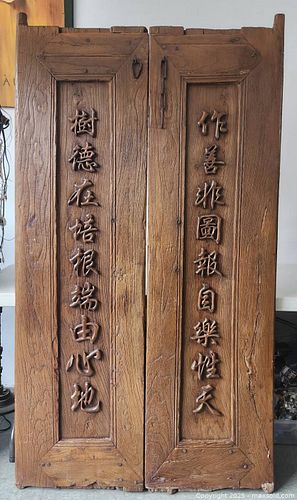 作善非圖報自樂性天
樹德在培根端由心地
© Copyright 2025 - maxsold.com